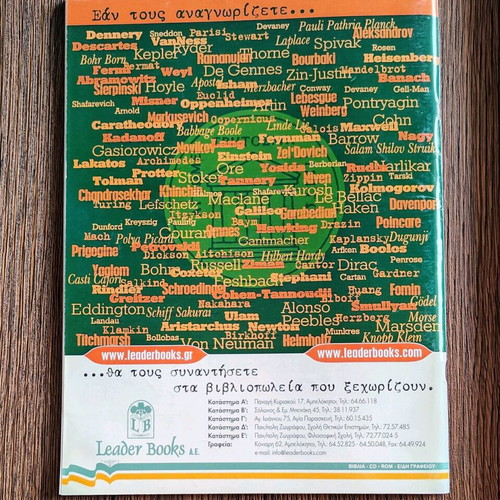 Εάν τους αναγνωρίζετε...
Dennery Sneddon Parisi Stewart Devaney Pauli Pathria Planck
Descartes VanNess Ryder Laplace Spivak Aleksandrov
Bohr Born Kepler Thorne Rosen
Fermat Ramanujan Bourbaki Heisenberg
Fermi Weyl De Gennes Mandelbrot
Abramowitz Zin-Justin Banach
Sierpinski Hoyle Isham Herzbacher Conway Devaney Gell-Man
Shafarevich Misner Euclid Lebesgue Pontryagin
Arnold Oppenheimer Artin Weinberg
Markusevich Copernicus Cohn
Caratheodory Linde Lie Galois Maxwell
Kadanoff Babbage Boole Feynman Barrow Nagy
Gasiorowicz Novikov Lang Zel'Dovich Salam Shilov Struik
Lakatos Archimedes Einstein Berberian
Protter Ore Yosida Rudin Narlikar
Tolman Stoker Niven Zippin Tarski
Chandrasekhar Khinchin Shafarevich Kurosh Kolmogorov
Turing Lefschetz Maclane Le Bellac Davenport
Itzykson Galileo Garabedian Haken
Dunford Kreyszig Pauling Baym Drazin Poincare
Mach Polya Picard Courant Omnes Hawking Kaplansky Dugunji
Prigogine Petrovskii Cantmacher Arfken Boolos
Dickson Aitchison Hilbert Hardy Penrose
Yaglom Bohm Russell Ziman Cantor Dirac
Casti Cajori Coxeter Stephani Cartan Gardner
Rindler Schroedinger Huang Fomin
Greitzer Cohen-Tannoudji Gödel
Nakahara Smullyan
Eddington Schiff Sakurai Alonso Morse
Landau Ulam Peebles Herzberg
Klamkin Aristarchus Newton Marsden
Titchmarsh Bollobas Birkhoff Munkres Knopp Klein
Von Neuman Helmholtz
www.leaderbooks.gr www.leaderbooks.com
...θα τους συναντήσετε
στα βιβλιοπωλεία που ξεχωρίζουν.
LB
Leader Books A.E.
Κατάστημα Α': Παναγή Κυριακού 17, Αμπελόκηποι, Τηλ: 64.66.118
Κατάστημα Β': Σόλωνος & Εμ. Μπενάκη 45, Τηλ: 38.11.937
Κατάστημα Γ': Αγ. Ιωάννου 75, Αγία Παρασκευή, Τηλ: 60.15.435
Κατάστημα Δ': Παν/πολη Ζωγράφου, Σχολή Θετικών Επιστημών, Τηλ: 72.57.485
Κατάστημα Ε': Παν/πολη Ζωγράφου, Φιλοσοφική Σχολή, Τηλ: 72.77.024-5
Γραφεία: Κόνιαρη 62, Αμπελόκηποι, Τηλ: 64.52.825 - 64.50.048, Fax: 64.49.924
e-mail: info@leaderbooks.com
ΒΙΒΛΙΑ - CD - ROM - ΕΙΔΗ ΓΡΑΦΕΙΟΥ